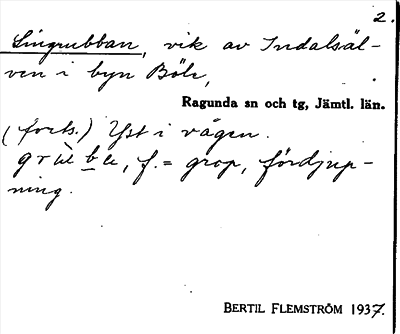 2.
Lingrubban, vik av Indalsäl-
ven i byn Böle,
Ragunda sn och tg, Jämtl. län.
(forts.) Yst i vågen.
grùbbe, f. = grop, fördjup-
ning.
BERTIL FLEMSTRÖM 1937.